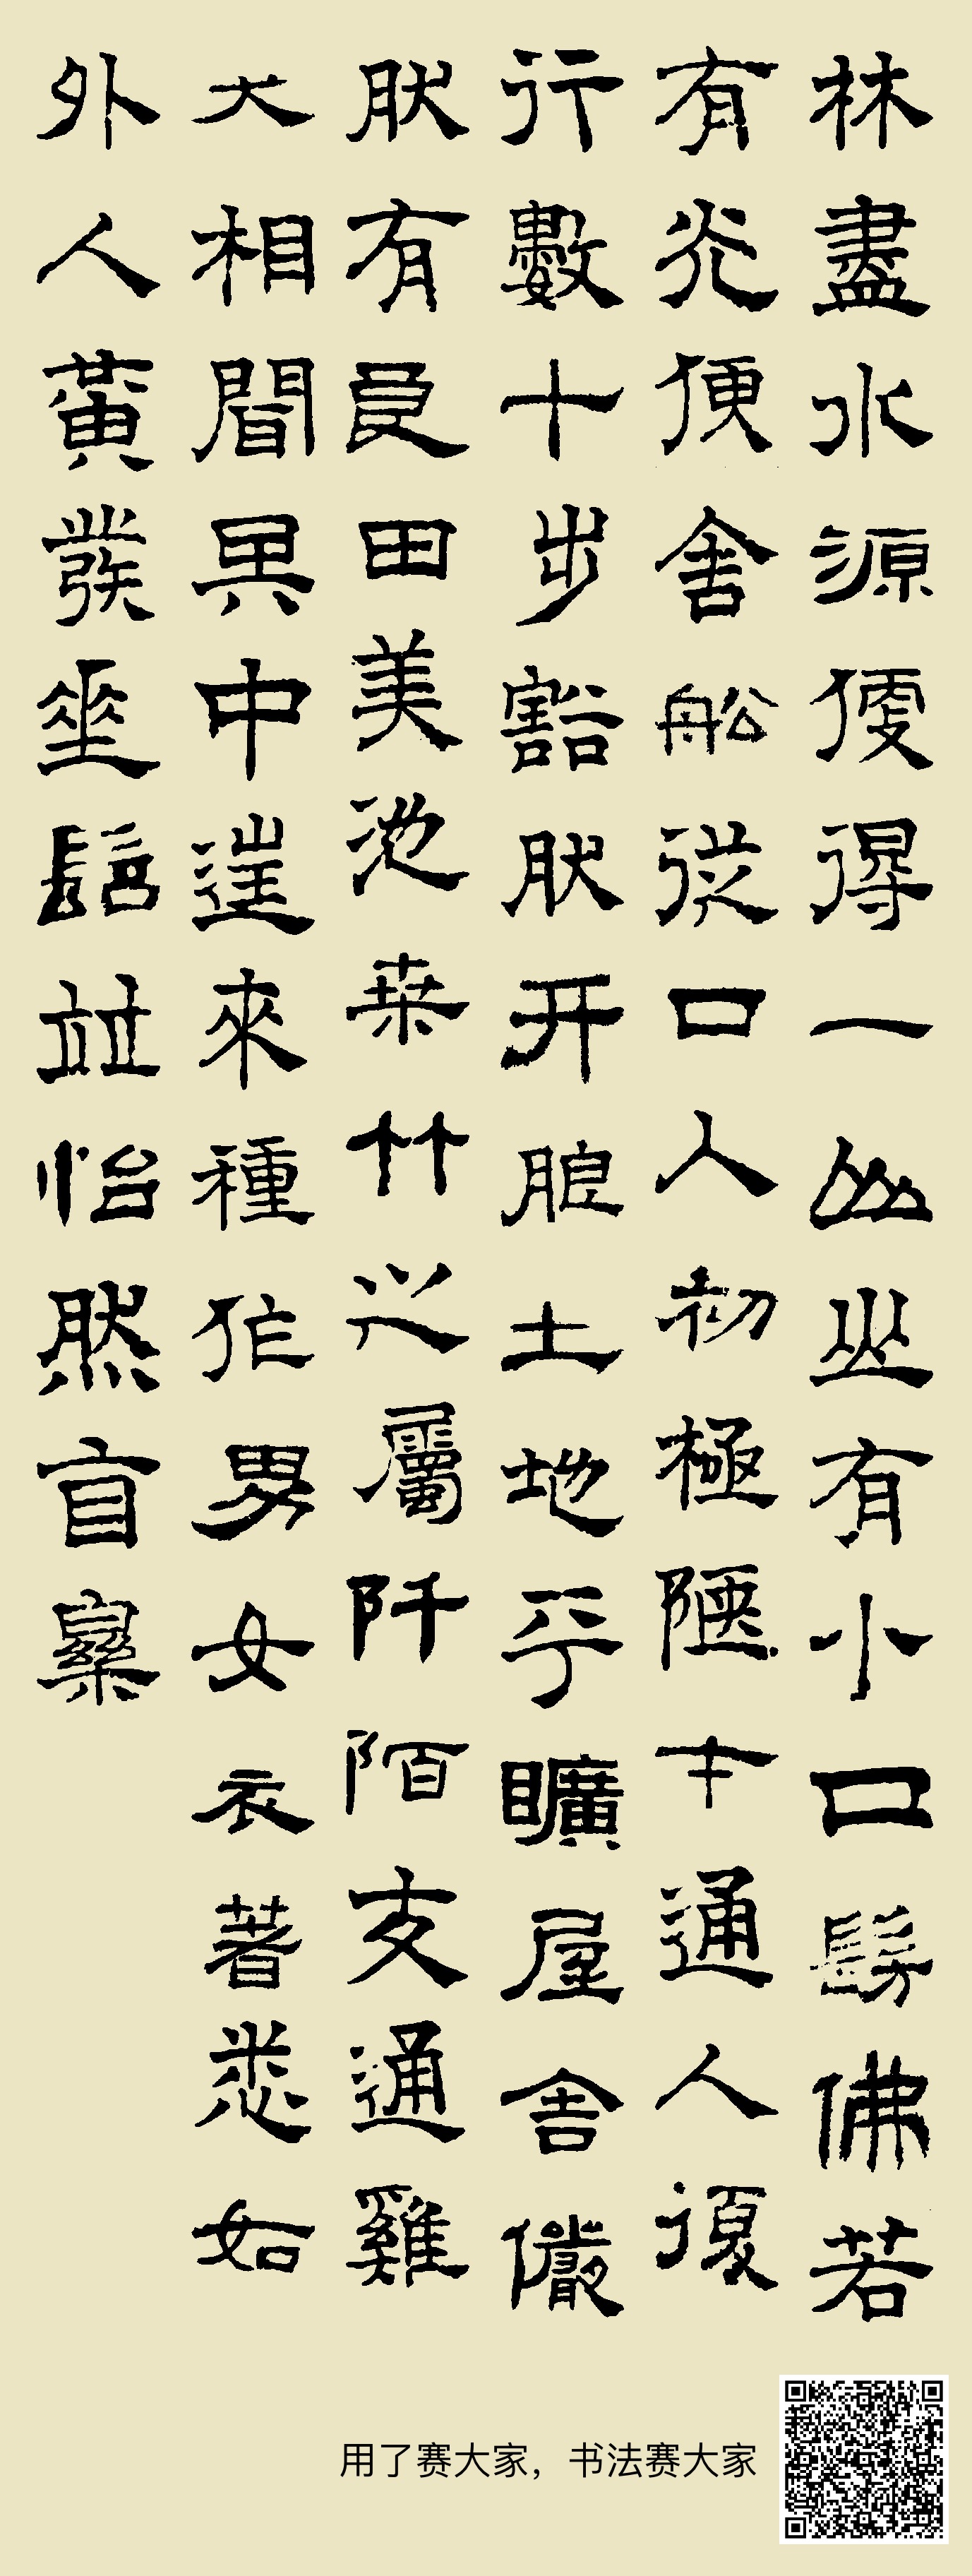 林盡水源便得一山山有小口髣佛若
有光便舍船從口入初極陿才通人復
行數十步豁肰开朖土地平曠屋舍儼
肰有良田美池桒竹之屬阡陌交通雞
犬相聞其中往來種作男女衣著悉如
外人黃髮垂髫並怡然自樂
用了赛大家，书法赛大家